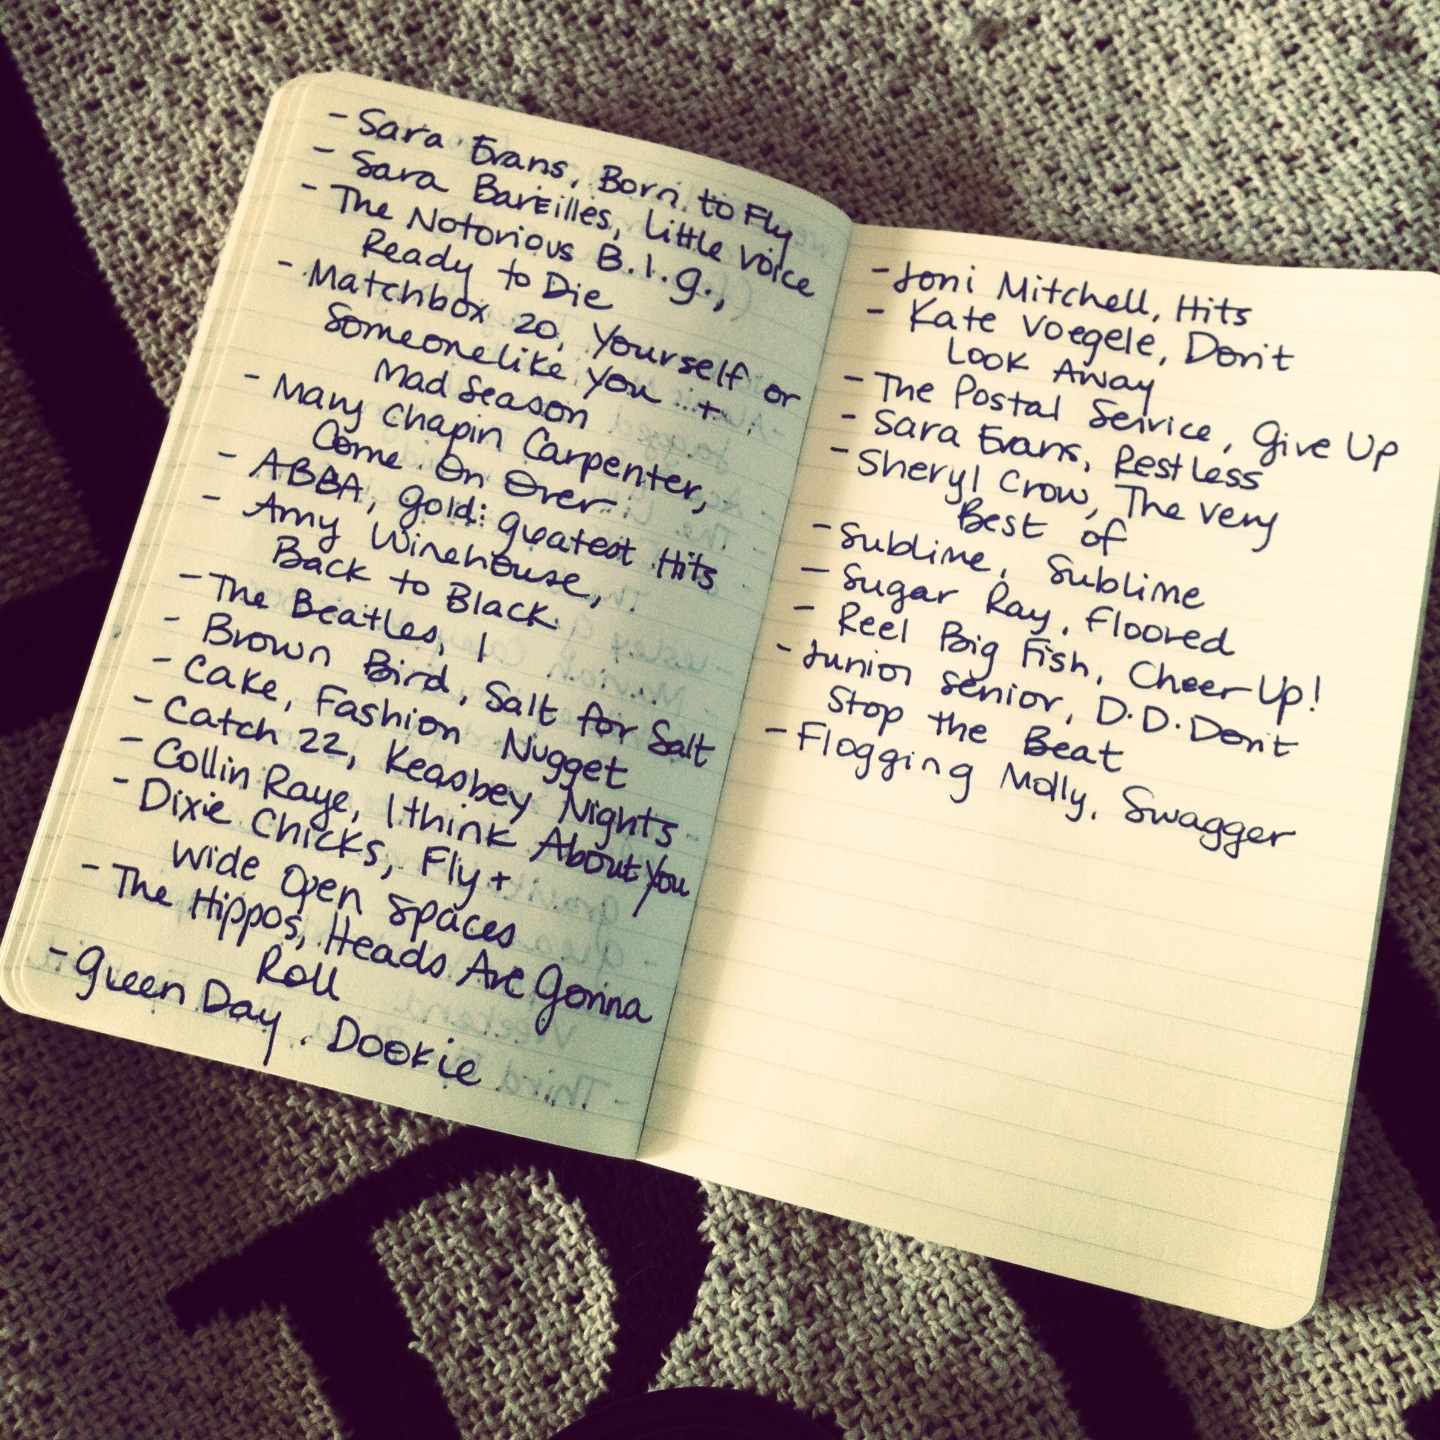 - Sara Evans, Born to Fly
- Sara Bareilles, Little Voice
- The Notorious B.I.G.,
Ready to Die
- Matchbox 20, Yourself or
Someone like You +
Mad Season
- Mary Chapin Carpenter,
Come On Over
- ABBA, Gold: Greatest Hits
- Amy Winehouse,
Back to Black
- The Beatles, 1
- Brown Bird, Salt for Salt
- Cake, Fashion Nugget
- Catch 22, Keasbey Nights
- Collin Raye, I think About You
- Dixie Chicks, Fly +
Wide Open Spaces
- The Hippos, Heads Are Gonna
Roll
- Green Day, Dookie
- Joni Mitchell, Hits
- Kate Voegele, Don't
Look Away
- The Postal Service, Give Up
- Sara Evans, Restless
- Sheryl Crow, The Very
Best of
- Sublime, Sublime
- Sugar Ray, Floored
- Reel Big Fish, Cheer Up!
- Junior Senior, D.D.Don't
Stop the Beat
- Flogging Molly, Swagger